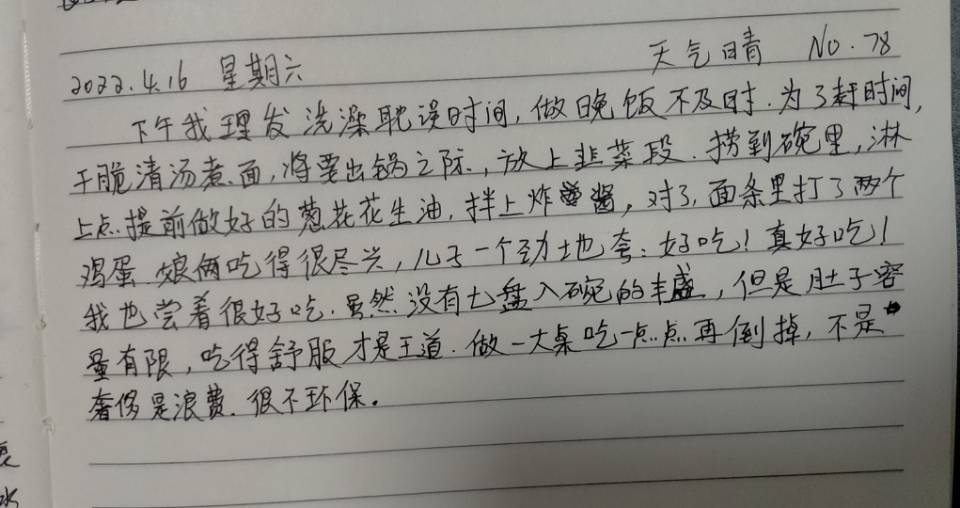 2022.4.16 星期六 天气晴 No.78
下午我理发洗澡耽误时间,做晚饭不及时.为了赶时间,
干脆清汤煮面,将要出锅之际,放上韭菜段.捞到碗里,淋
上点提前做好的葱花花生油,拌上炸酱,对了,面条里打了两个
鸡蛋.娘俩吃得很尽兴,儿子一个劲地夸:好吃!真好吃!
我也尝着很好吃.虽然没有七盘八碗的丰盛,但是肚子容
量有限,吃得舒服才是王道.做一大桌吃一点点再倒掉,不是
奢侈是浪费.很不环保.